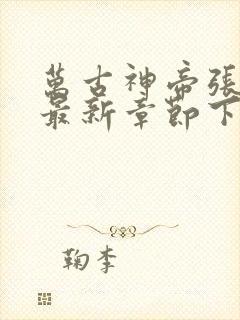 萬古神帝張
最新章節下
鞠李